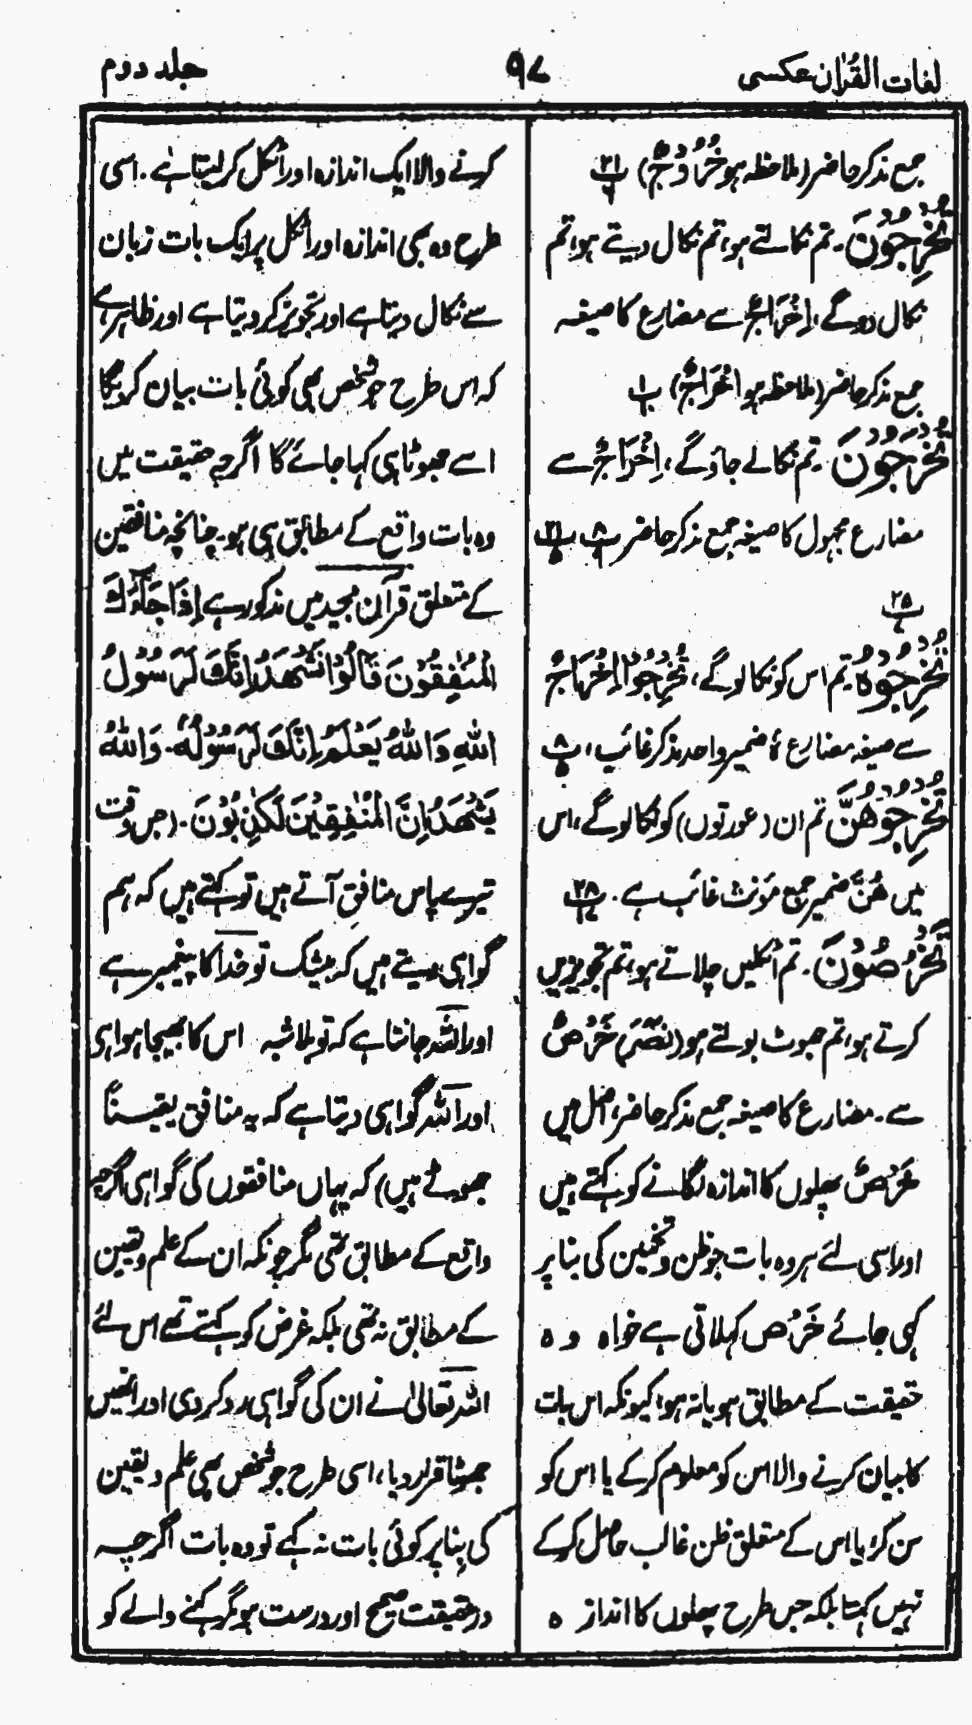 لغات القرآن عکسی
۹۷
جلد دوم
جمع مذکر حاضر (ملاحظہ ہو خُرُوْجٌ) پ ۲۱ ۶
تُخْرِجُوْنَ۔ تم نکالتے ہو، تم نکال دیتے ہو، تم
نکال دوگے، اِخْرَاجٌ سے مضارع کا صیغہ
جمع مذکر حاضر (ملاحظہ ہو اِخْرَاجٌ) پ ۱
تُخْرَجُوْنَ۔ تم نکالے جاؤ گے، اِخْرَاجٌ سے
مضارع مجہول کا صیغہ جمع مذکر حاضر پ ۸ ۹ پ ۲۱ ۵
پ ۲۵
تُخْرِجُوْهُ۔ تم اس کو نکالو گے، تُخْرِجُوْا اِخْرَاجٌ
سے صیغہ مضارع ہٗ ضمیر واحد مذکر غائب، پ ۸ ۵
تُخْرِجُوْهُنَّ تم ان (عورتوں) کو نکالو گے، اس
میں ھُنَّ ضمیر جمع مؤنث غائب ہے۔ پ ۲۸ ۱۷
تَخْرُصُوْنَ۔ تم اٹکلیں چلاتے ہو، تم تجویزیں
کرتے ہو، تم جھوٹ بولتے ہو (نَصَرَ) خَرْصٌ
سے۔ مضارع کا صیغہ جمع مذکر حاضر، اصل میں
خَرْصٌ پھلوں کا اندازہ لگانے کو کہتے ہیں
اور اسی لئے ہر وہ بات جو ظن و تخمین کی بنا پر
کہی جائے خَرْص کہلاتی ہے خواہ وہ
حقیقت کے مطابق ہو یا نہ ہو، کیونکہ اس بات
کا بیان کرنے والا اس کو معلوم کرکے یا اس کو
سن کر یا اس کے متعلق ظن غالب حاصل کرکے
نہیں کہتا بلکہ جس طرح پھلوں کا اندازہ
کرنے والا ایک اندازہ اور اٹکل کر لیتا ہے۔ اسی
طرح وہ بھی اندازہ اور اٹکل پر ایک بات زبان
سے نکال دیتا ہے اور تجویز کر دیتا ہے اور ظاہر ہے
کہ اس طرح جو شخص بھی کوئی بات بیان کریگا
اسے جھوٹا ہی کہا جائے گا اگرچہ حقیقت میں
وہ بات واقع کے مطابق ہی ہو۔ چنانچہ منافقین
کے متعلق قرآن مجید میں مذکور ہے اِذَا جَآءَكَ
الْمُنٰفِقُوْنَ قَالُوْا نَشْهَدُ اِنَّكَ لَرَسُوْلُ
اللّٰهِ وَاللّٰهُ يَعْلَمُ اِنَّكَ لَرَسُوْلُهٗ۔ وَاللّٰهُ
يَشْهَدُ اِنَّ الْمُنٰفِقِيْنَ لَكٰذِبُوْنَ۔ (جس وقت
تیرے پاس منافق آتے ہیں تو کہتے ہیں کہ ہم
گواہی دیتے ہیں کہ بیشک تو خدا کا پیغمبر ہے
اور اللہ جانتا ہے کہ تو بلاشبہ اس کا بھیجا ہوا ہی
اور اللہ گواہی دیتا ہے کہ یہ منافق یقیناً
جھوٹے ہیں) کہ یہاں منافقوں کی گواہی اگرچہ
واقع کے مطابق تھی مگر چونکہ ان کے علم و یقین
کے مطابق نہ تھی بلکہ غرض کو کہتے تھے اس لئے
اللہ تعالیٰ نے ان کی گواہی رد کر دی اور انھیں
جھوٹا قرار دیا، اسی طرح جو شخص بھی علم و یقین
کی بنا پر کوئی بات نہ کہے تو وہ بات اگرچہ
درحقیقت صحیح اور درست ہو مگر کہنے والے کو